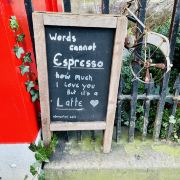 Words
cannot
Espresso
how much
I Love you
But it's a
Latte